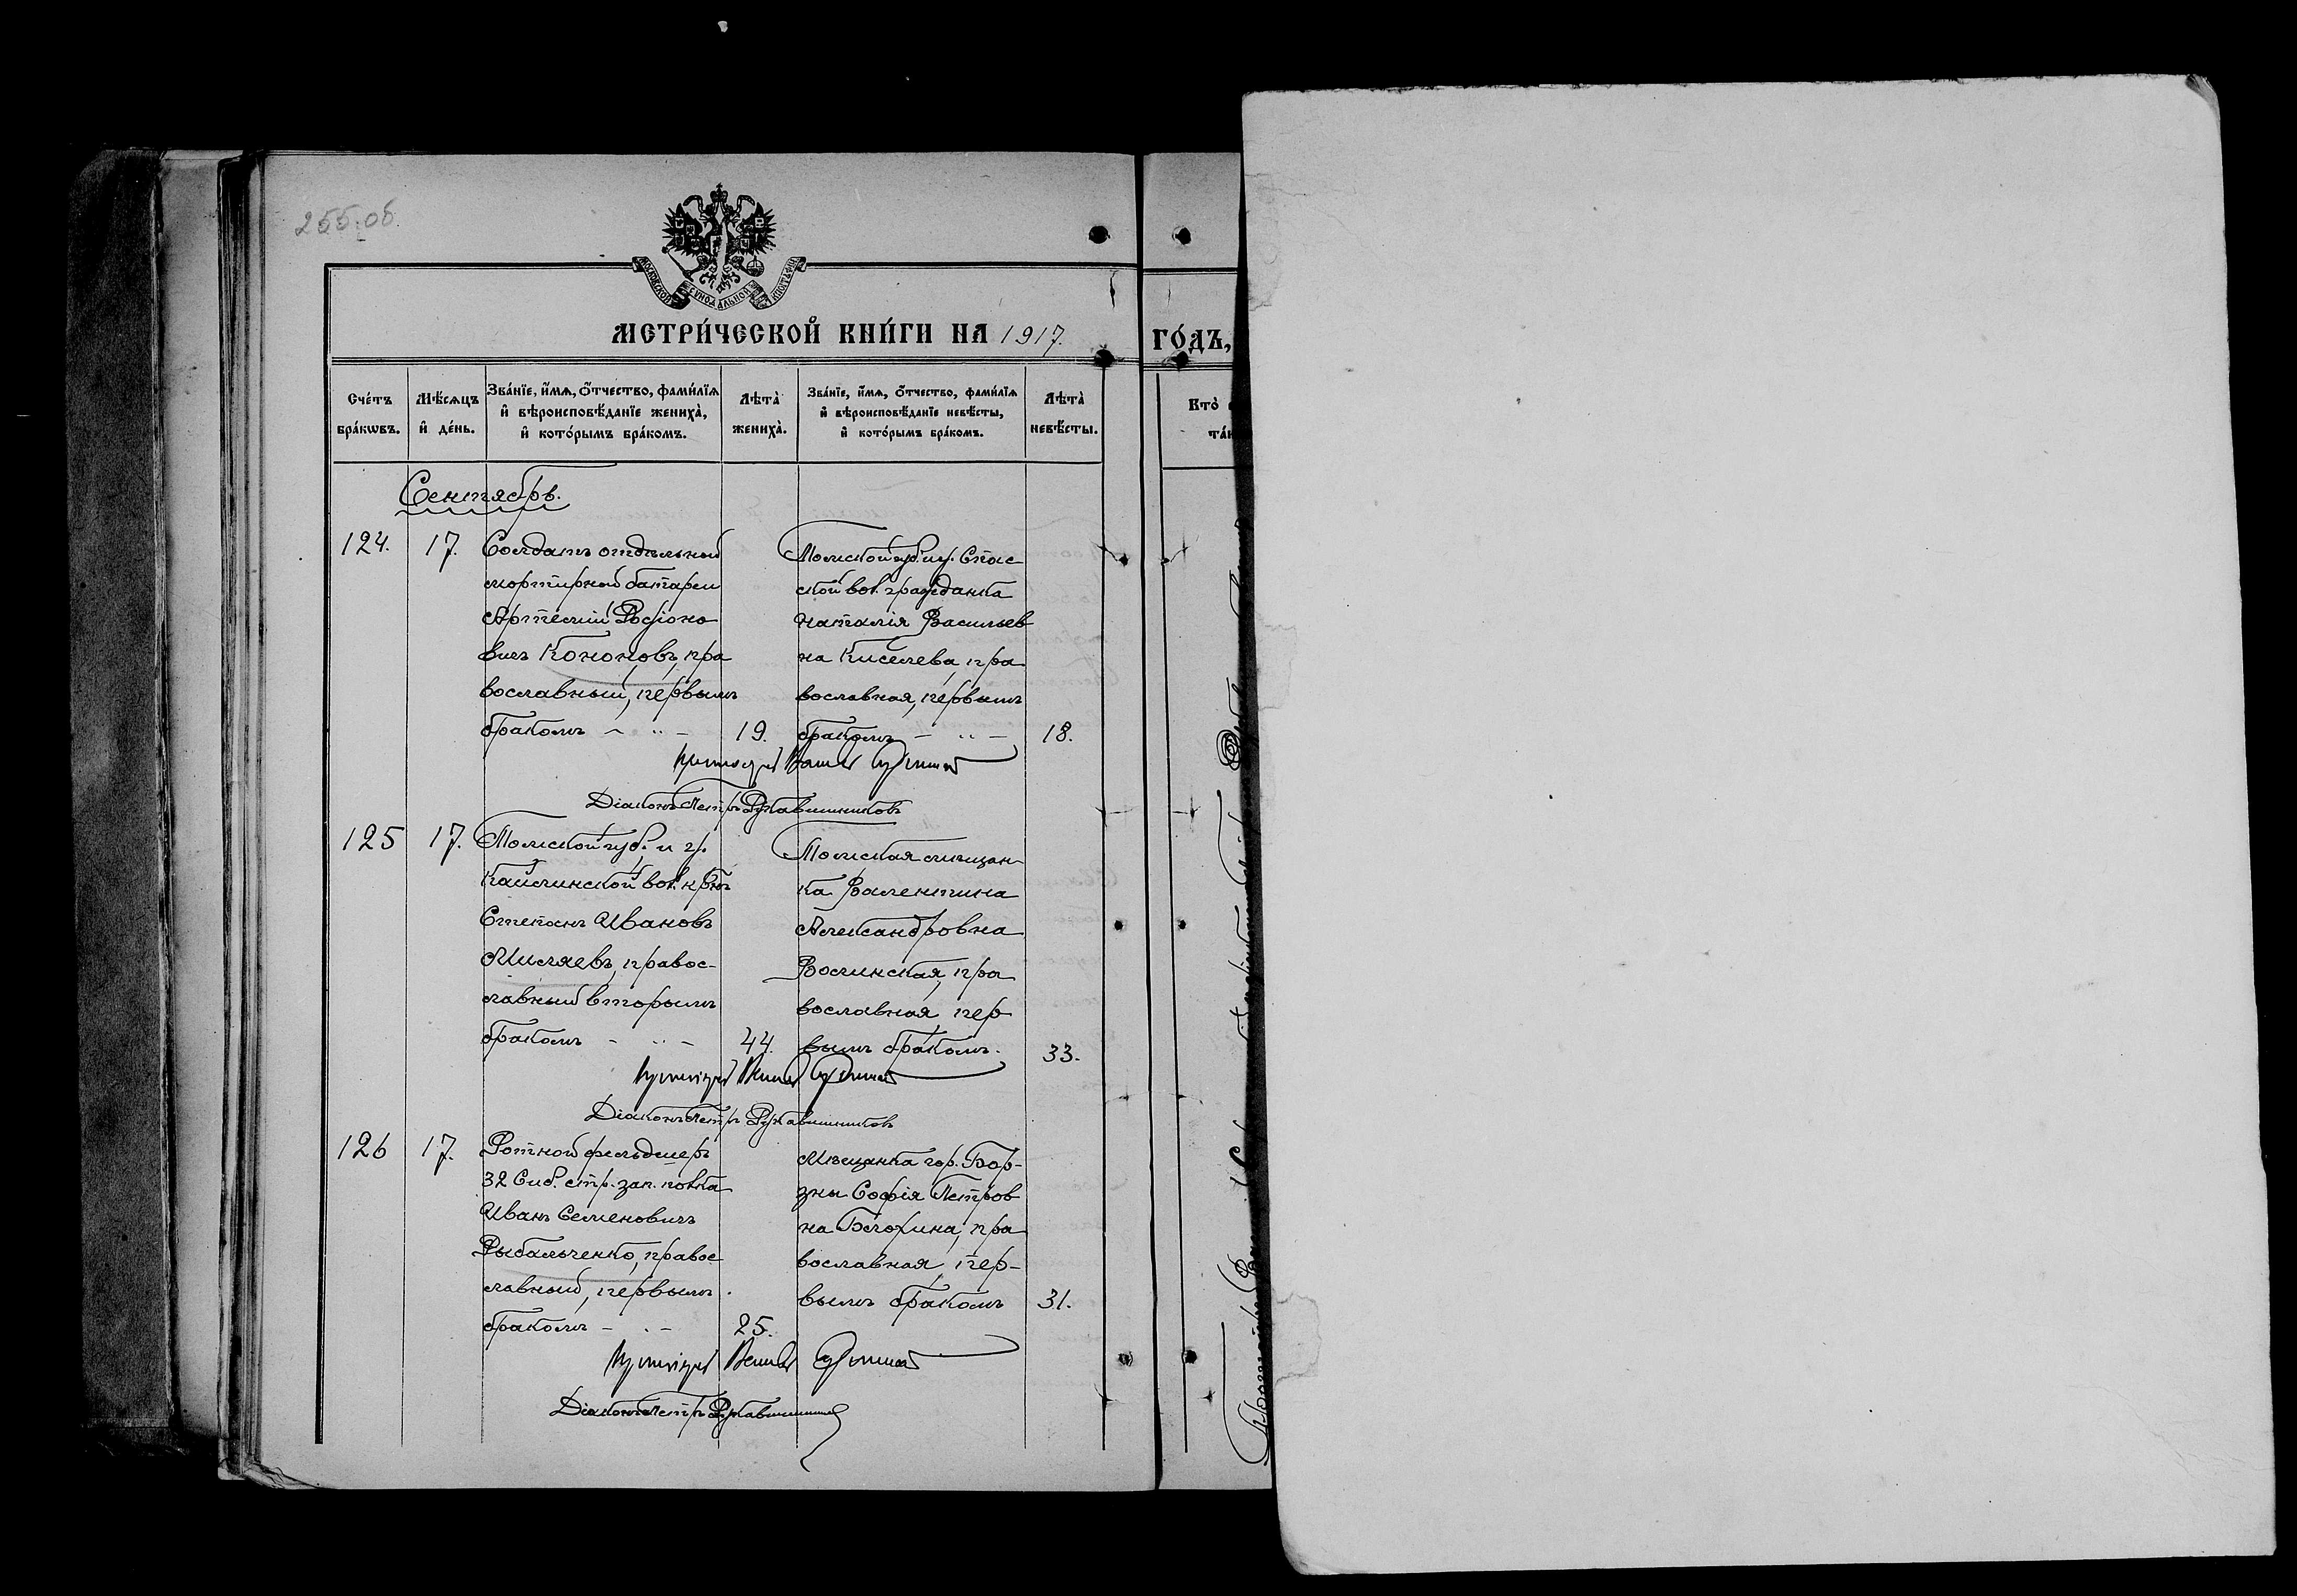 255 об.
МОСКОВСКОЙ СѴНОДАЛЬНОЙ ТИПОГРАФІИ
МЕТРИ́ЧЕСКОЙ КНИ́ГИ НА 1917.
ГО́ДЪ,
Сче́тъ бра́кѡвъ.
Мѣ́сѧцъ и҆ де́нь.
Зва́нїе, и҆́мѧ, ѻ҆́тчество, фами́лїѧ и҆ вѣроисповѣ́данїе жениха̀, и҆ кото́рымъ бра́комъ.
Лѣта̀ жениха̀.
Зва́нїе, и҆́мѧ, ѻ҆́тчество, фами́лїѧ и҆ вѣроисповѣ́данїе невѣ́сты, и҆ кото́рымъ бра́комъ.
Лѣта̀ невѣ́сты.
Кто̀
Сентябрь.
124.
17.
Солдатъ отдѣльной
мортирной батареи
Артемій Родіоно
вичъ Кононовъ, пра
вославный, первымъ
бракомъ - " -
19.
Томской губ. и у. Спас
ской вол. гражданка
Наталія Васильев
на Киселева, пра
вославная, первымъ
бракомъ - " -
18.
Діаконъ Петръ Рукавишниковъ
125
17.
Томской губ. и у.
Кайлинской вол. кр-нъ
Степанъ Ивановъ
Миляевъ, правос-
лавный вторымъ
бракомъ - " -
44.
Томская мѣщан-
ка Валентина
Александровна
Волинская, пра
вославная пер
вымъ бракомъ.
33.
Діаконъ Петръ Рукавишниковъ
126
17.
Ротной фельдшеръ
32 Сиб. стр. зап. полка
Иванъ Семеновичъ
Рыбальченко, правос
лавный, первымъ
бракомъ - " -
25.
Мѣщанка гор. Бор-
зны Софія Петров
на Блохина, пра
вославная, пер-
вымъ бракомъ
31.
Діаконъ Петръ Рукавишниковъ